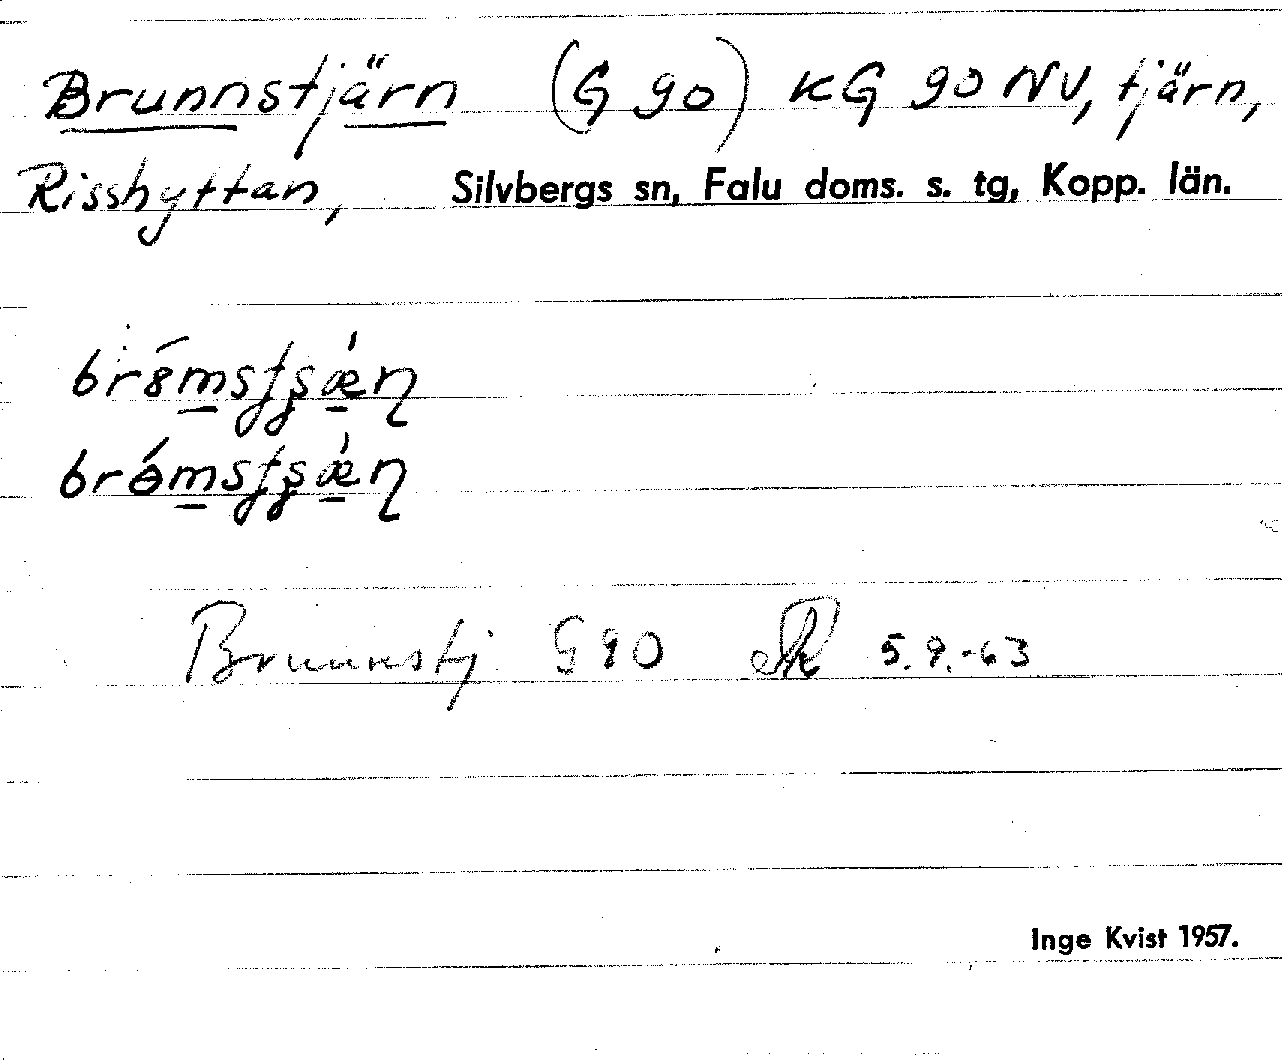 Brunnstjärn (G 90) KG 90 NV, tjärn,
Risshyttan, Silvbergs sn, Falu doms. s. tg, Kopp. län.
Brunnstj. G 90 5.9.-63
Inge Kvist 1957.